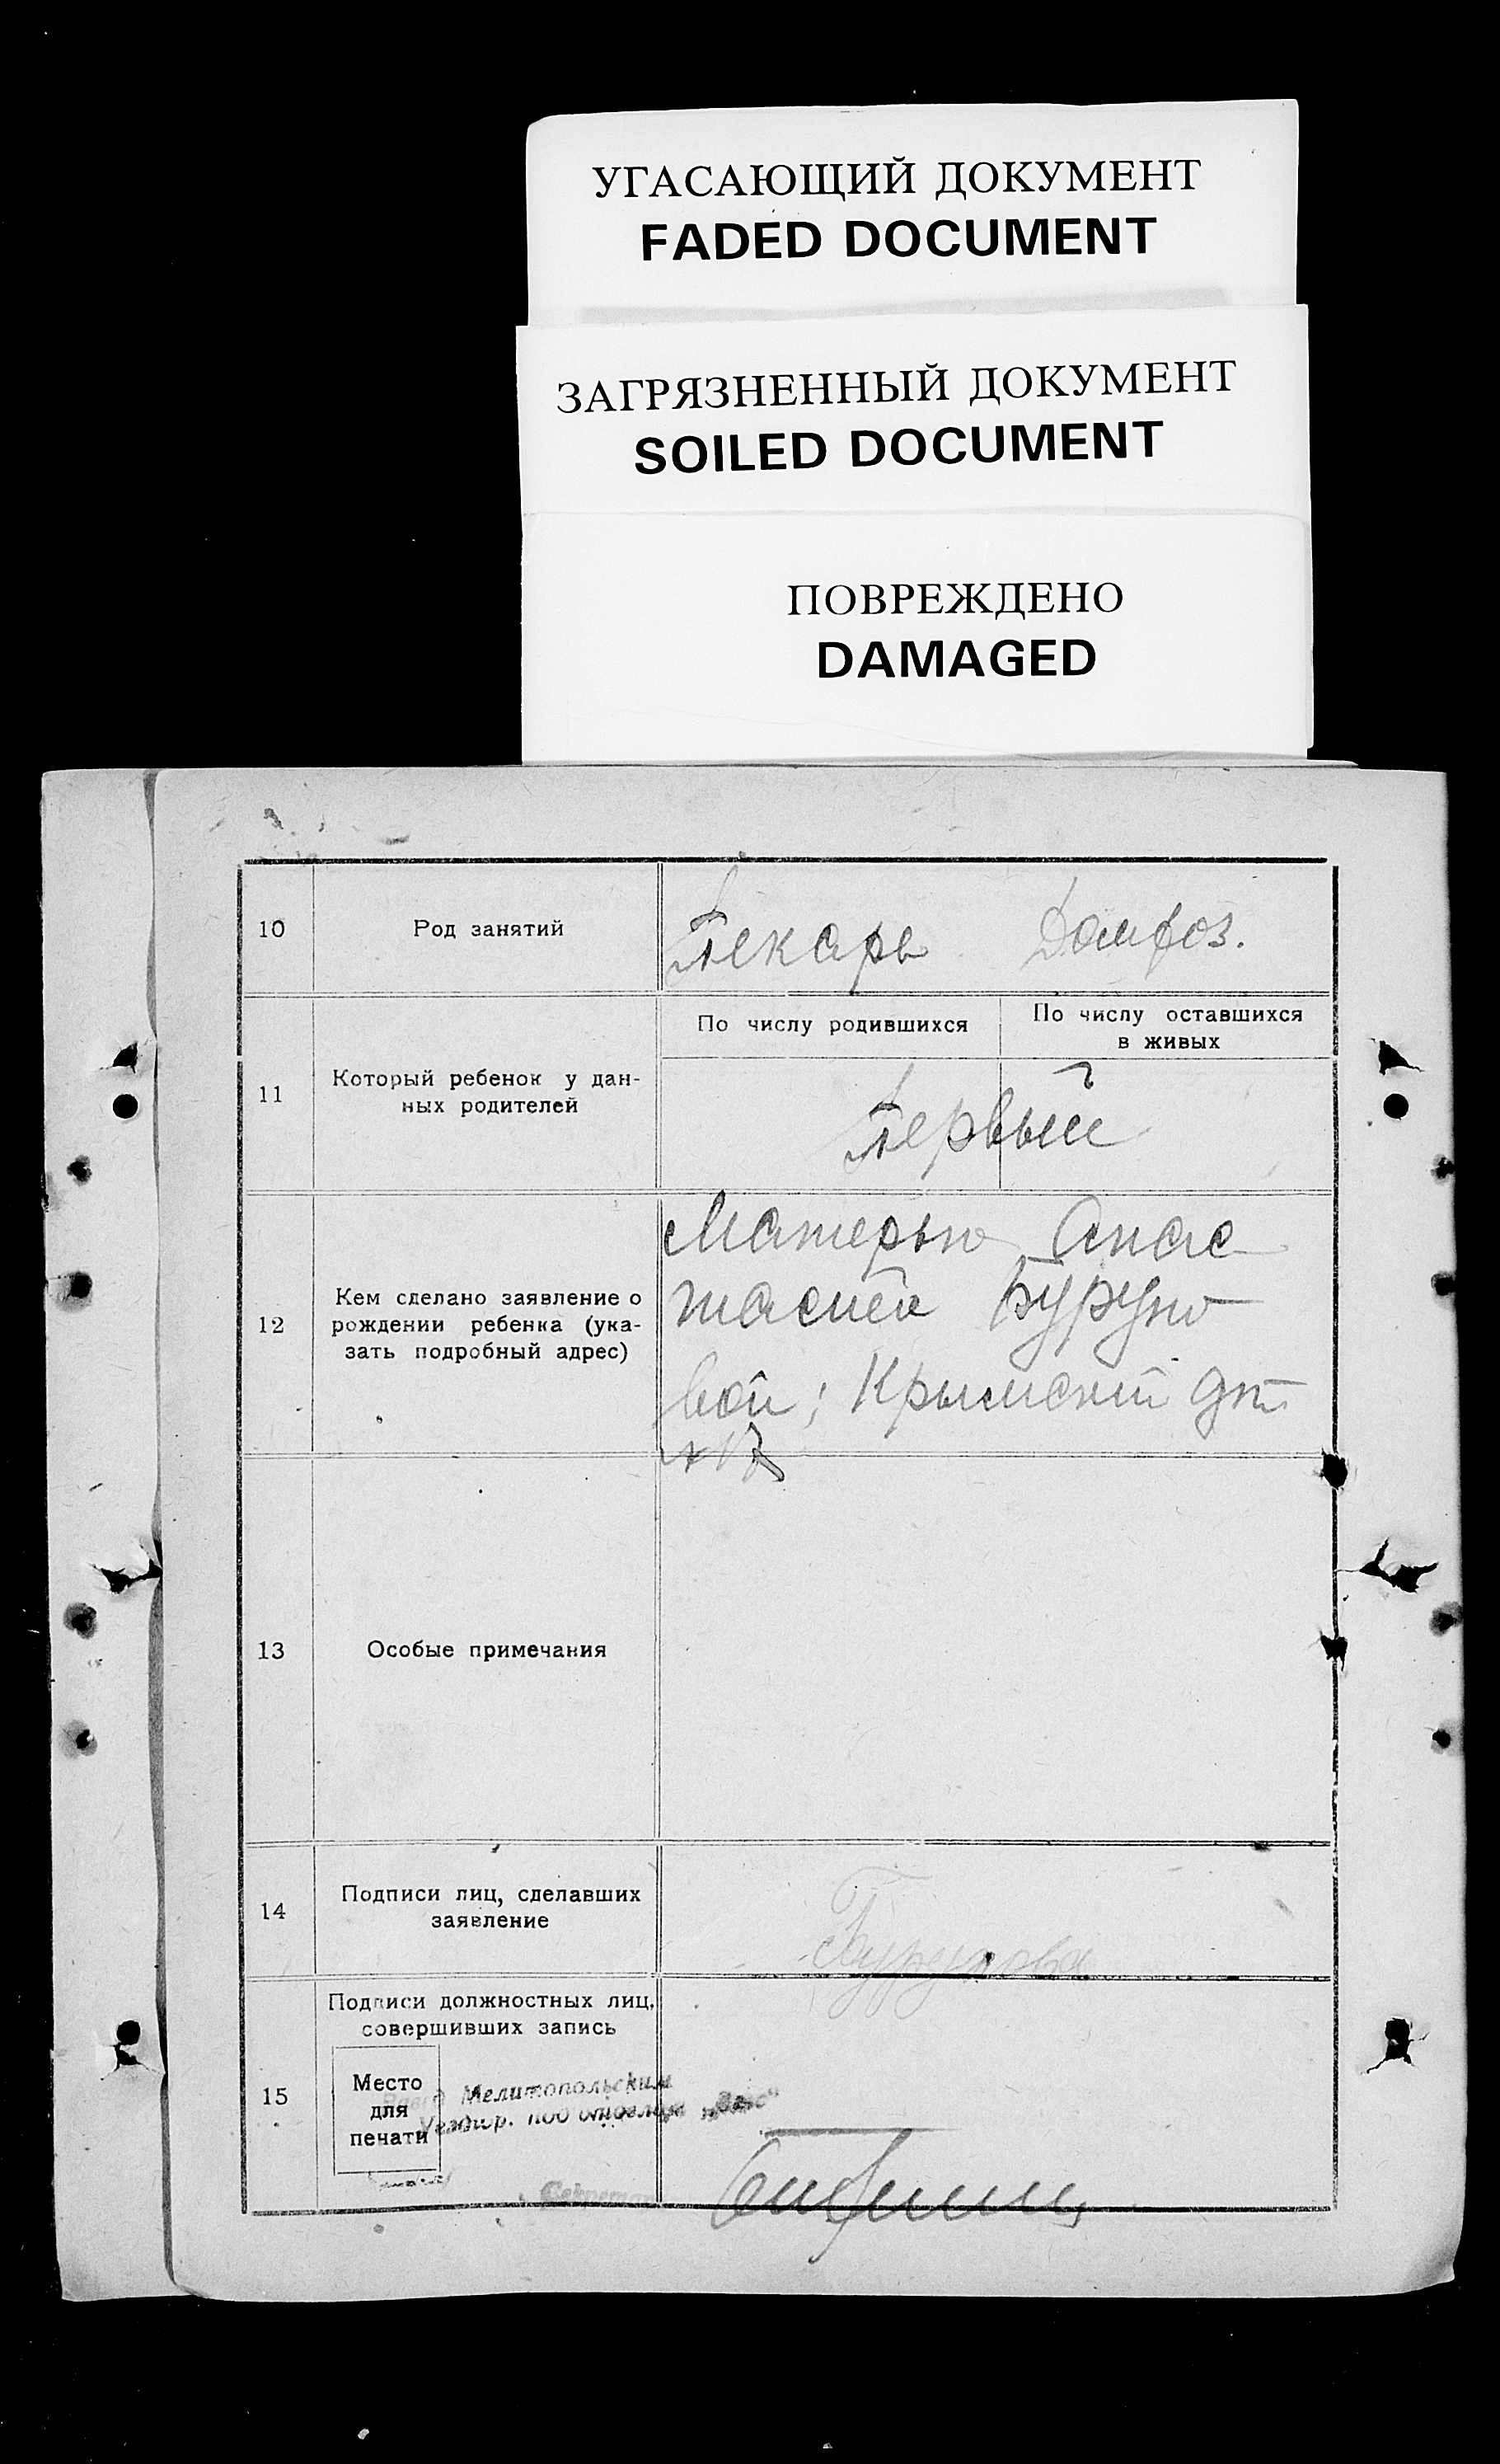 УГАСАЮЩИЙ ДОКУМЕНТ
FADED DOCUMENT
ЗАГРЯЗНЕННЫЙ ДОКУМЕНТ
SOILED DOCUMENT
ПОВРЕЖДЕНО
DAMAGED
10
Род занятий
Пекарь
Домхоз.
11
Который ребенок у дан-
ных родителей
По числу родившихся
По числу оставшихся
в живых
Первый
12
Кем сделано заявление о
рождении ребенка (ука-
зать подробный адрес)
Матерью Анас
тасией Буруно
вой; Крымский
№ 17
13
Особые примечания
14
Подписи лиц, сделавших
заявление
Бурунова
15
Подписи должностных лиц,
совершивших запись
Место
для
печати
Мелитопольским
под отделом „Загс“
Секретарь